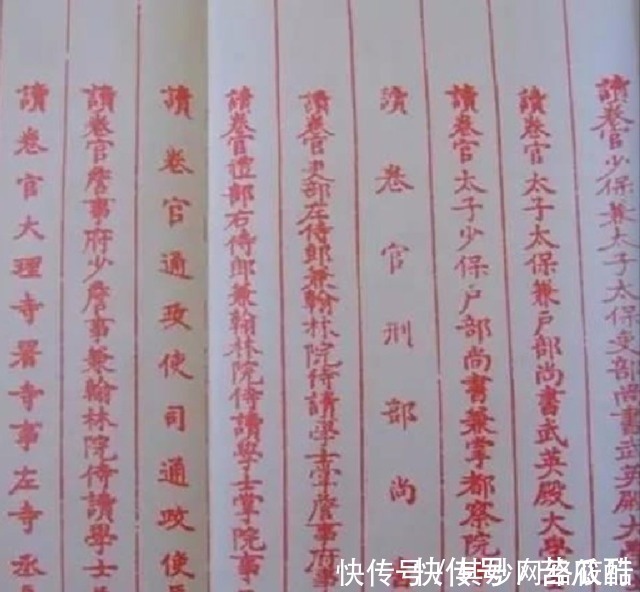 讀卷官少保兼太子太保吏部尚書武英殿大
讀卷官太子太保兼戶部尚書武英殿大學
讀卷官太子少保戶部尚書兼掌都察院
讀卷官刑部尚
讀卷官吏部左侍郎兼翰林院侍讀學士掌詹事府事
讀卷官禮部右侍郎兼翰林院侍讀學士掌院事
讀卷官通政使司通政使
讀卷官詹事府少詹事兼翰林院侍讀學士
讀卷官大理寺署寺事左寺丞
快传号